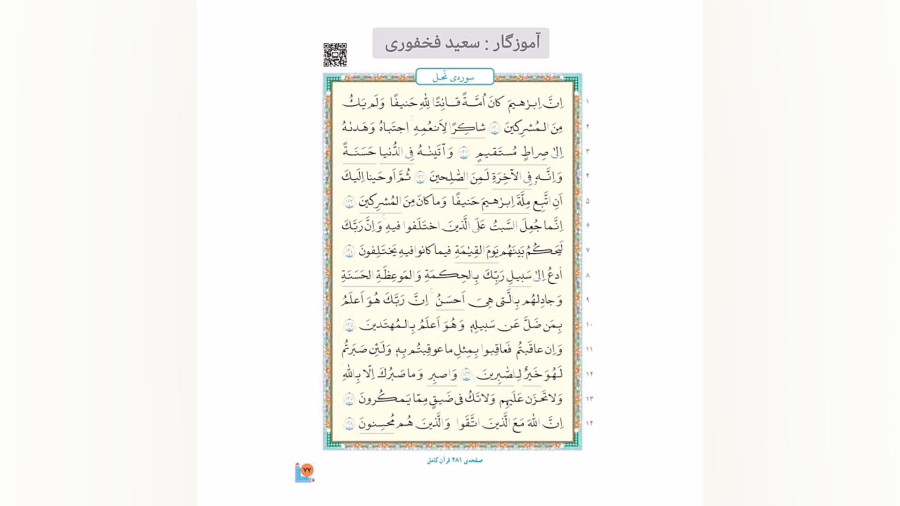 آموزگار : سعید فخفوری
سوره‌ی نَحل
۱ اِنَّ اِبرٰهیمَ کانَ اُمَّةً قانِتًا لِلّٰهِ حَنیفًا وَلَم یَکُ
۲ مِنَ المُشرِکینَ شاکِرًا لِاَنعُمِهِ اجتَباهُ وَهَدىٰهُ
۳ اِلىٰ صِراطٍ مُستَقیمٍ وَآتَینٰهُ فِی الدُّنیا حَسَنَةً
۴ وَاِنَّهو فِی الآخِرَةِ لَمِنَ الصّٰلِحینَ ثُمَّ اَوحَینا اِلَیکَ
۵ اَنِ اتَّبِع مِلَّةَ اِبرٰهیمَ حَنیفًا وَما کانَ مِنَ المُشرِکینَ
۶ اِنَّما جُعِلَ السَّبتُ عَلَی الَّذینَ اختَلَفوا فیهِ وَاِنَّ رَبَّکَ
۷ لَیَحکُمُ بَینَهُم یَومَ القِیٰمَةِ فیما کانوا فیهِ یَختَلِفونَ
۸ اُدعُ اِلىٰ سَبیلِ رَبِّکَ بِالحِکمَةِ وَالمَوعِظَةِ الحَسَنَةِ
۹ وَجادِلهُم بِالَّتی هِیَ اَحسَنُ اِنَّ رَبَّکَ هُوَ اَعلَمُ
۱۰ بِمَن ضَلَّ عَن سَبیلِهٖ وَهُوَ اَعلَمُ بِالمُهتَدینَ
۱۱ وَاِن عاقَبتُم فَعاقِبوا بِمِثلِ ما عوقِبتُم بِهٖ وَلَئِن صَبَرتُم
۱۲ لَهُوَ خَیرٌ لِلصّٰبِرینَ وَاصبِر وَما صَبرُکَ اِلّا بِاللّٰهِ
۱۳ وَلا تَحزَن عَلَیهِم وَلا تَکُ فی ضَیقٍ مِمّا یَمکُرونَ
۱۴ اِنَّ اللّٰهَ مَعَ الَّذینَ اتَّقَوا وَالَّذینَ هُم مُحسِنونَ
صفحه‌ی ۲۸۱ قرآن کامل
۷۷